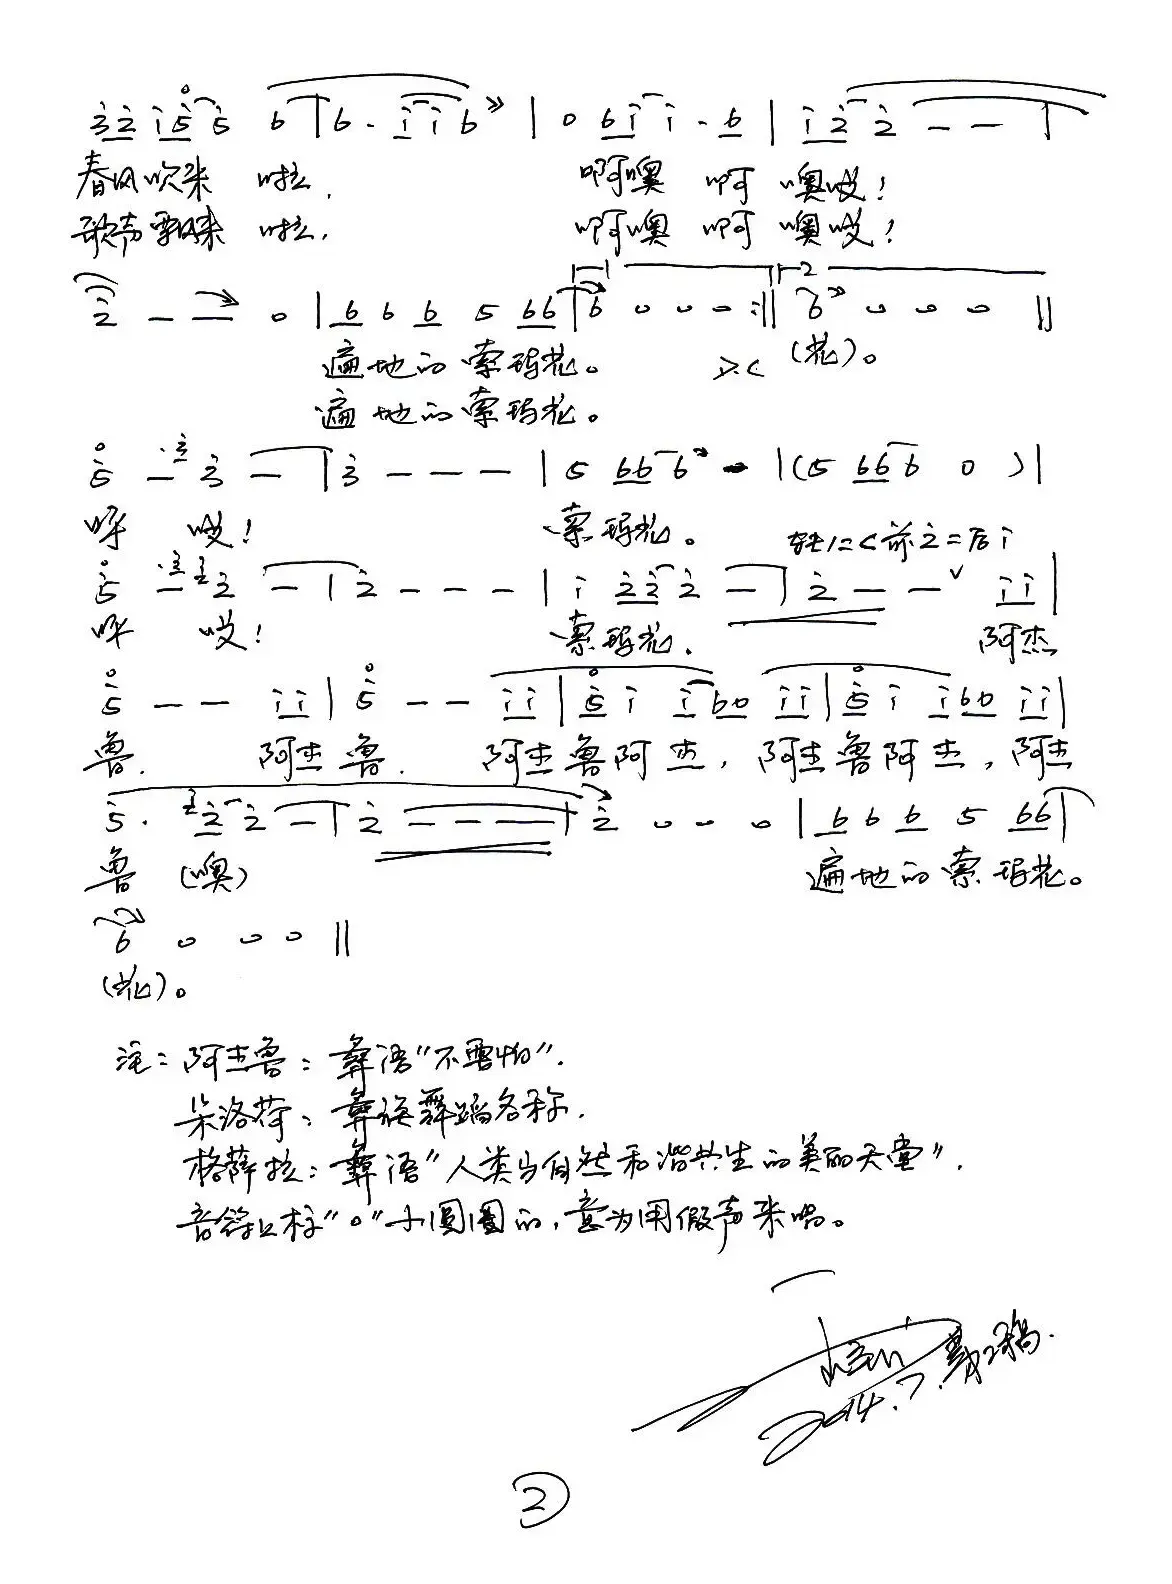 3̇ 2̇ 1̇ 5̇ 5̇ 6 | 6 · 1̇ 1̇ 6 | 0 6 1̇ 1̇ · 6 | 1̇ 2̇ 2̇ — — |
春风吹来 啦， 啊噢 啊 噢哎！
歌声飘来 啦， 啊噢 啊 噢哎！
2̇ — — 0 | 6 6 6 5 66 | 6 0 0 0 :‖ 6 0 0 0 ‖
遍地的索玛花。 D.C (花)。
遍地的索玛花。
5̇ — 3̇ 3̇ — | 3̇ — — — | 5 66 6 — | (5 66 6 0 ) |
呀 哎！ 索玛花。 转1=C前2̇=后1̇
5̇ — 3̇ 2̇ — | 2̇ — — — | 1̇ 2̇2̇ 2̇ — | 2̇ — — ∨ 1̇1̇ |
呀 哎！ 索玛花. 阿杰
5̇ — — 1̇1̇ | 5̇ — — 1̇1̇ | 5̇ 1̇ 1̇60 1̇1̇ | 5̇ 1̇ 1̇60 1̇1̇ |
鲁. 阿杰鲁. 阿杰鲁阿杰，阿杰鲁阿杰，阿杰
5̇ · 2̇ 2̇ — | 2̇ — — — | 2̇ 0 0 0 | 6 6 6 5 66 |
鲁 (噢) 遍地的索玛花。
6 0 0 0 ‖
(花)。
注：阿杰鲁：彝语“不要怕”.
朵洛荷：彝族舞蹈名称.
格萨拉：彝语“人类与自然和谐共生的美丽天堂”.
音符上标“o”小圆圈的，意为用假声来唱。
2014.7.第2稿.
②